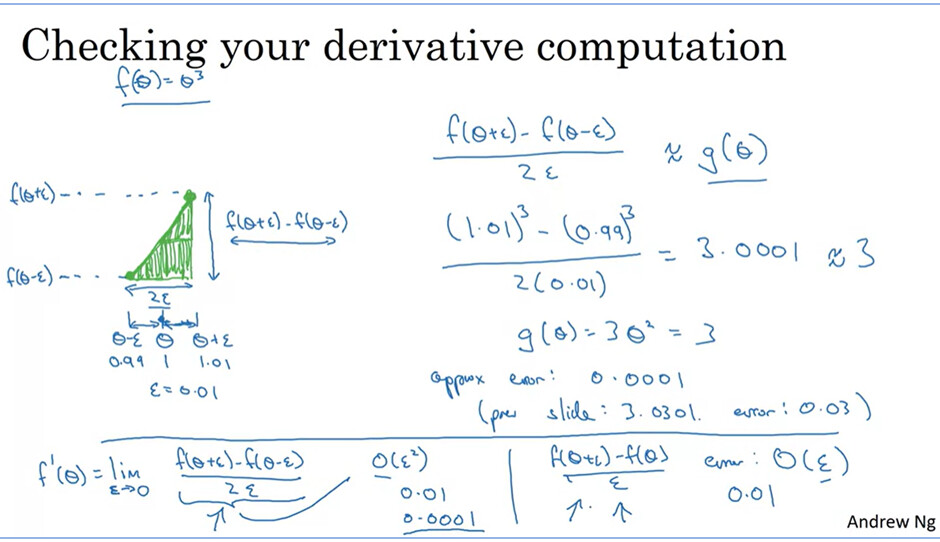 Checking your derivative computation
f(θ) = θ³
f(θ+ε)
f(θ-ε)
f(θ+ε) - f(θ-ε)
2ε
θ-ε θ θ+ε
0.99 1 1.01
ε = 0.01
f(θ+ε) - f(θ-ε)
2ε
≈ g(θ)
(1.01)³ - (0.99)³
2(0.01)
= 3.0001 ≈ 3
g(θ) = 3θ² = 3
approx error: 0.0001
(prev slide: 3.0301. error: 0.03)
f'(θ) = lim
ε→0
f(θ+ε) - f(θ-ε)
2ε
O(ε²)
0.01
0.0001
f(θ+ε) - f(θ)
ε
error: O(ε)
0.01
Andrew Ng